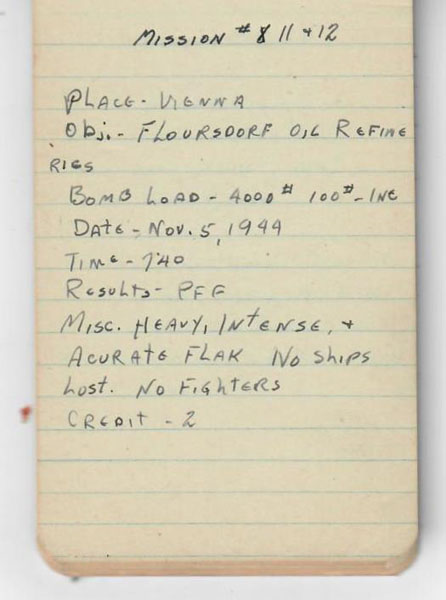 MISSION # 8 11 + 12
PLACE - VIENNA
Obj. - FLOURSDORF OIL REFINE
RIES
BOMB LOAD - 4000# 100# - INC
DATE - NOV. 5, 1944
TIME - 740
RESULTS - PFF
MISC. HEAVY, INTENSE, +
ACURATE FLAK NO SHIPS
LOST. NO FIGHTERS
CREDIT - 2